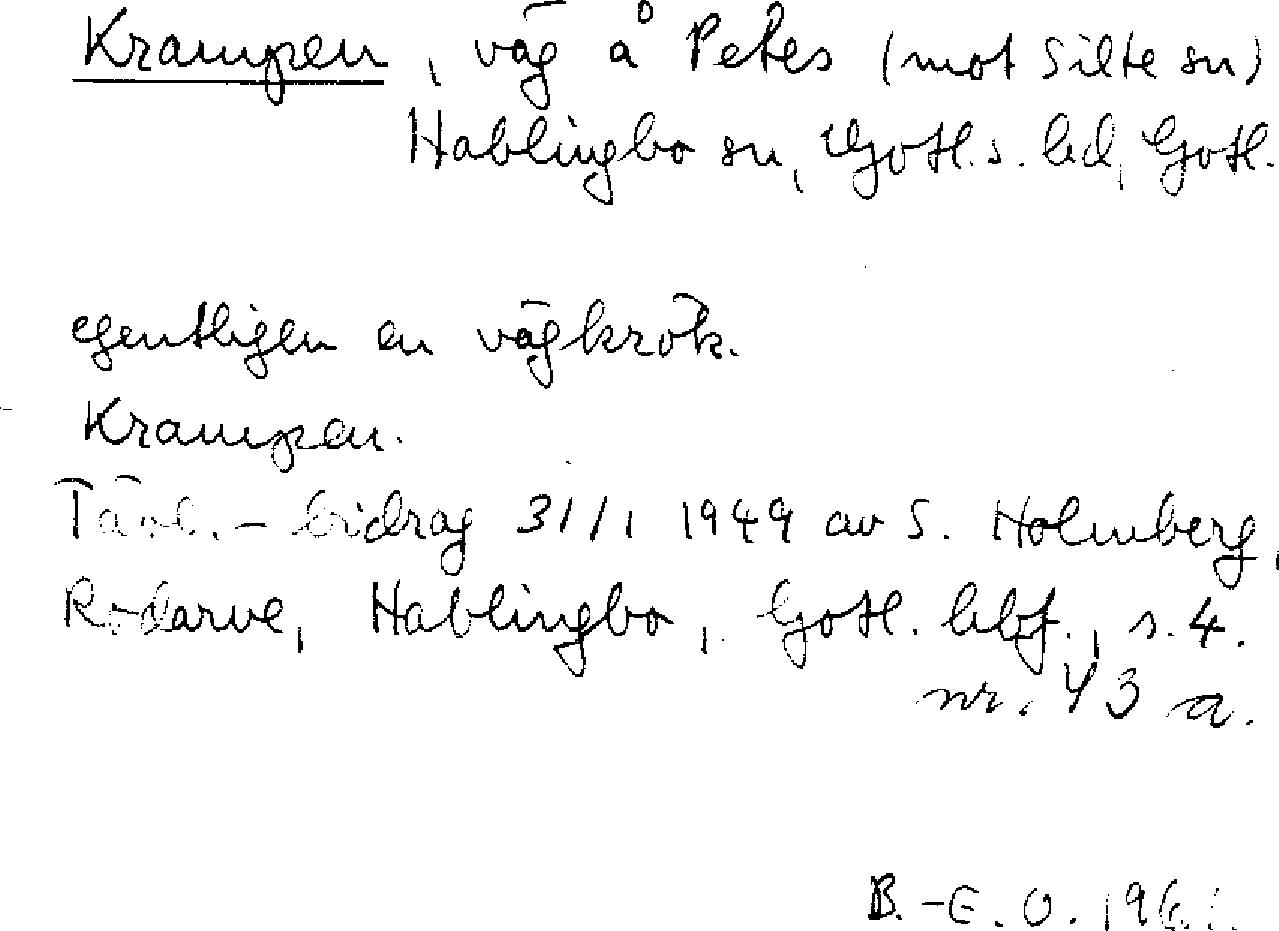 Krampen, väg å Petes (mot Silte sn)
Hablingbo sn, Gotl. s. hd, Gotl.
egentligen en vägkrök.
Krampen.
Tävl.-bidrag 31/1 1949 av S. Holmberg,
Rodarve, Hablingbo, Gotl. hbf., s. 4.
nr. 43 a.
B.-E. O.